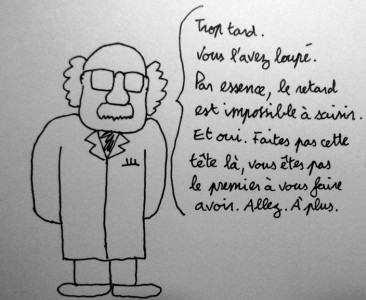 Trop tard.
Vous l'avez loupé.
Par essence, le retard
est impossible à saisir.
Et oui. Faites pas cette
tête là, vous êtes pas
le premier à vous faire
avoir. Allez. À plus.